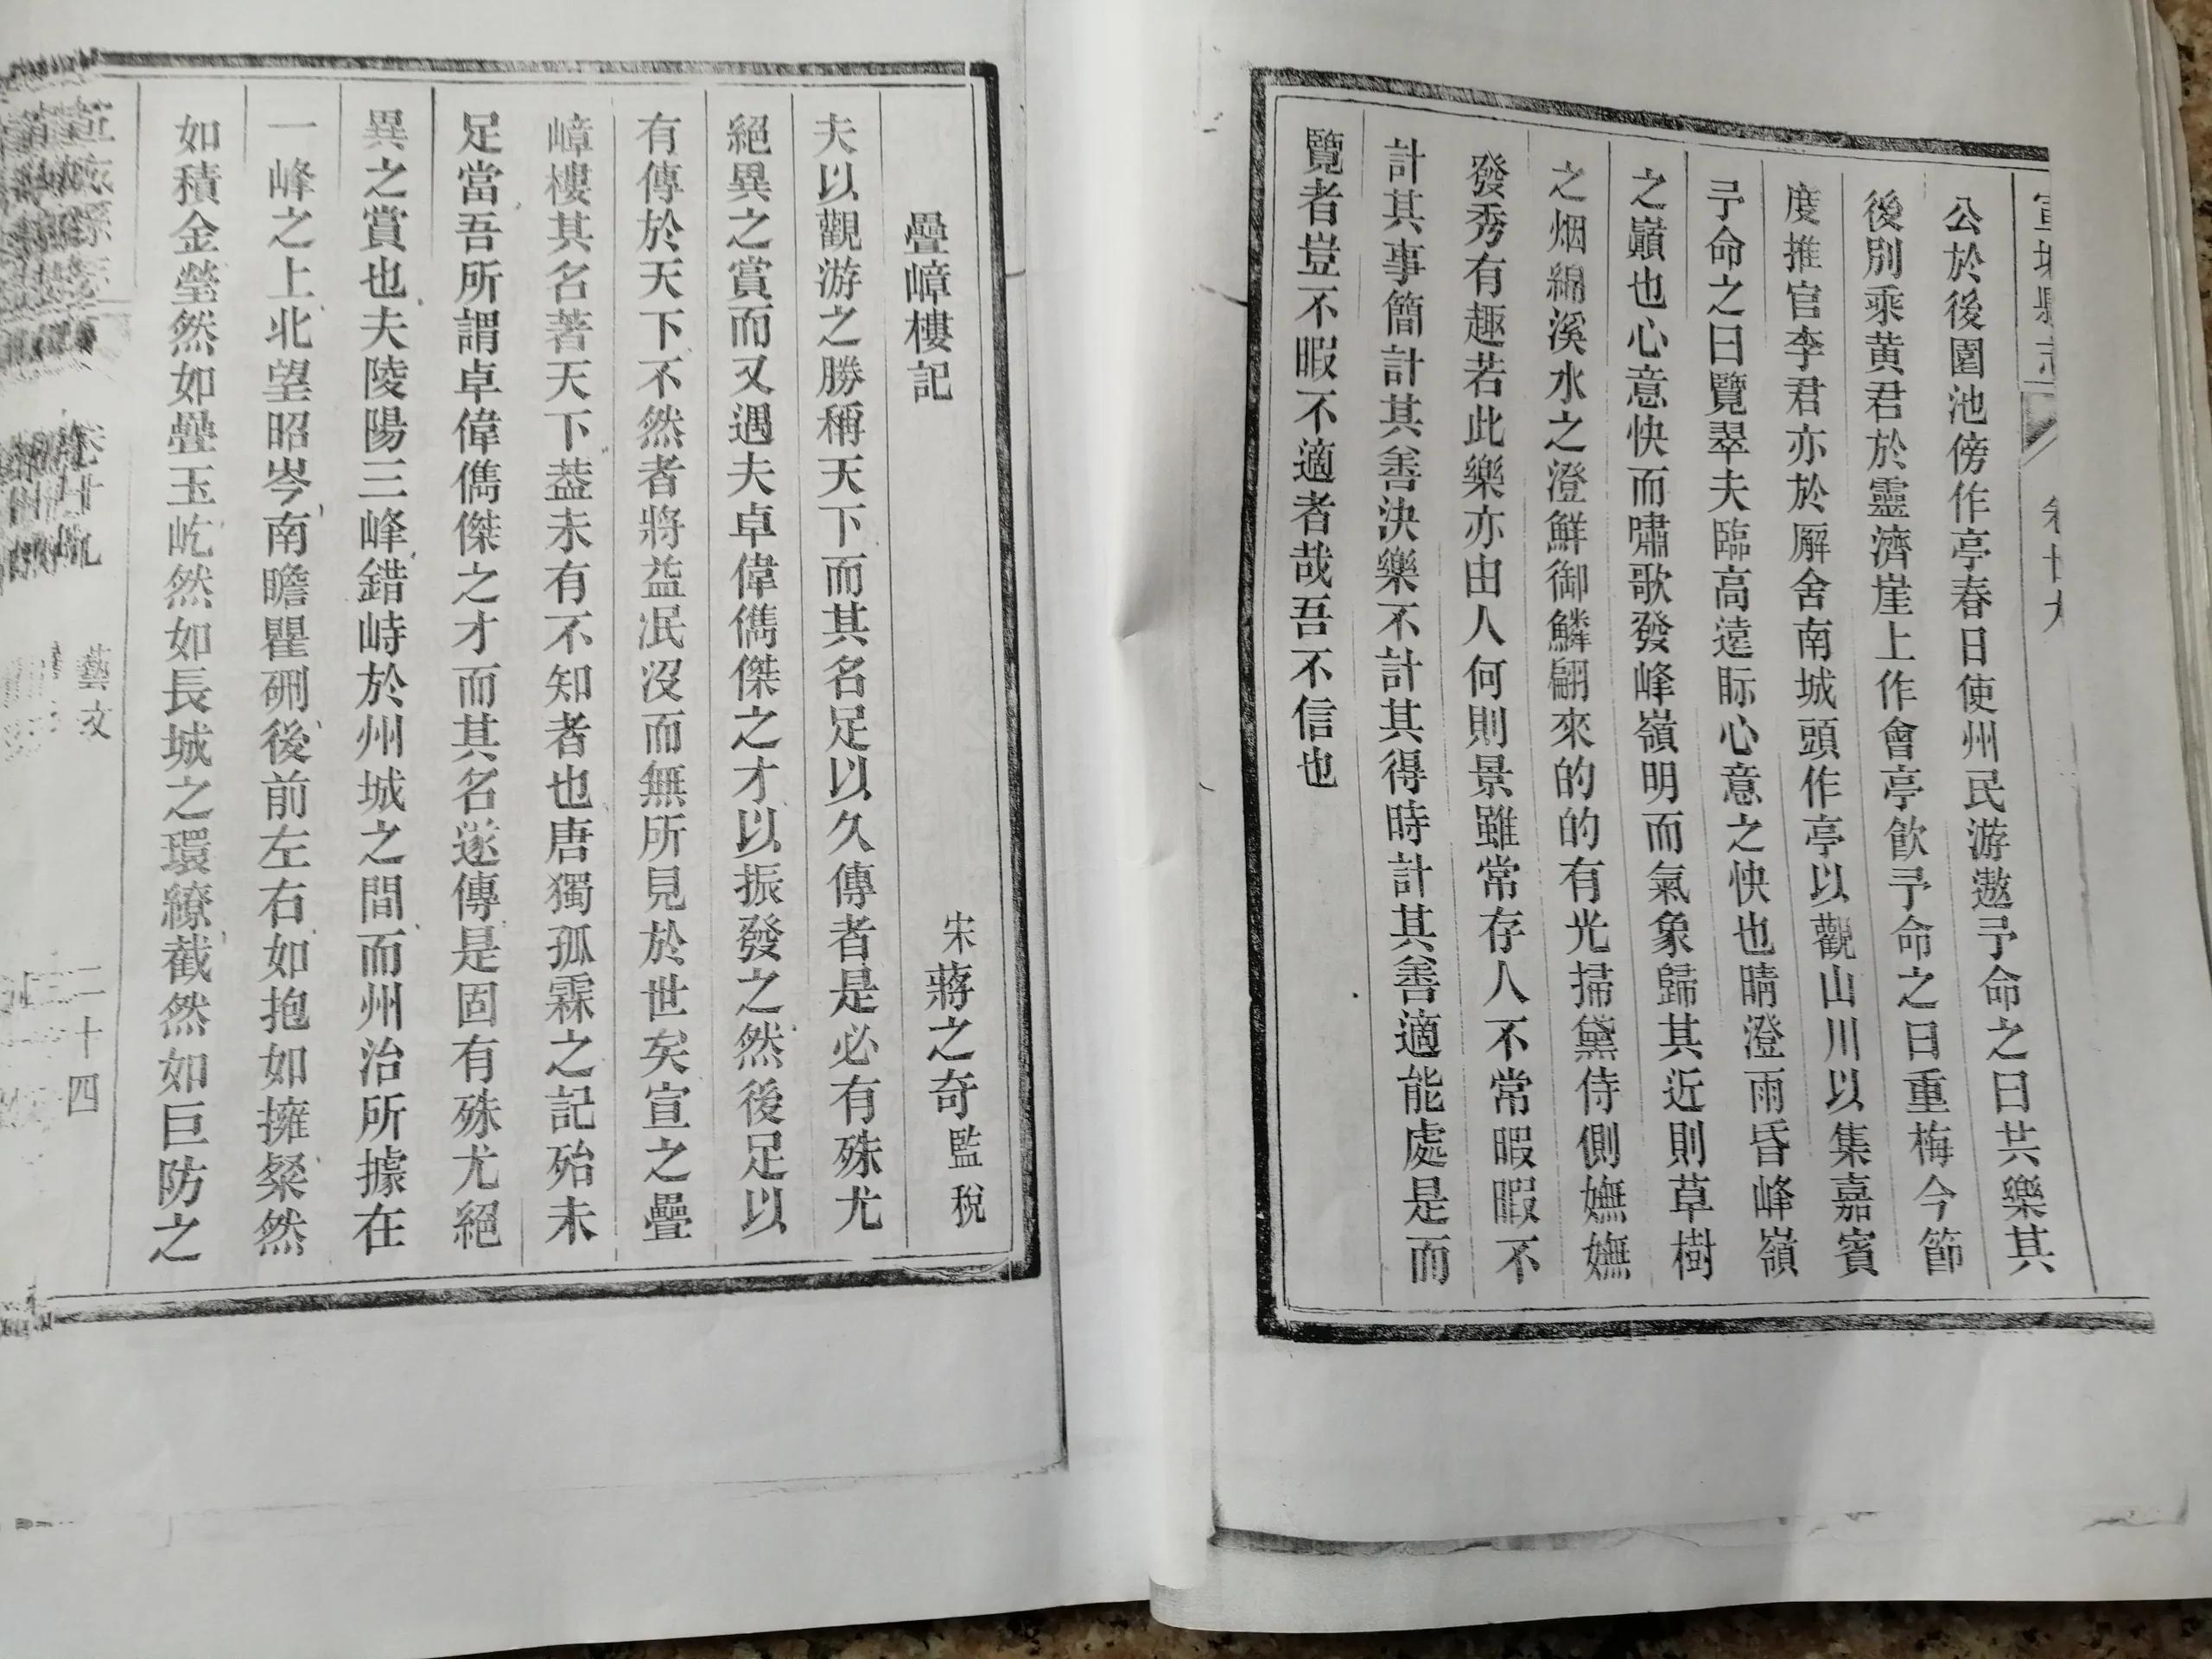 公於後園池傍作亭春日使州民游遨予命之曰共樂其
後別乘黃君於靈濟崖上作會亭飮予命之曰重梅今節
度推官李君亦於廨舍南城頭作亭以觀山川以集嘉賓
予命之曰覽翠夫臨高遠眎心意之快也晴澄雨昏峰嶺
之巔也心意快而嘯歌發峰嶺明而氣象歸其近則草樹
之烟綿溪水之澄鮮御鱗翩來的的有光掃黛侍側嫵嫵
發秀有趣若此樂亦由人何則景雖常存人不常暇暇不
計其事簡計其善決樂不計其得時計其善適能處是而
覽者豈不暇不適者哉吾不信也
疊嶂樓記
宋蔣之奇監稅
夫以觀游之勝稱天下而其名足以久傳者是必有殊尤
絕異之賞而又遇夫卓偉儁傑之才以振發之然後足以
有傳於天下不然者將益泯沒而無所見於世矣宣之疊
嶂樓其名著天下葢未有不知者也唐獨孤霖之記殆未
足當吾所謂卓偉儁傑之才而其名遂傳是固有殊尤絕
異之賞也夫陵陽三峰錯峙於州城之間而州治所據在
一峰之上北望昭岑南瞻瞿硎後前左右如抱如擁粲然
如積金瑩然如疊玉屹然如長城之環繚截然如巨防之
藝文
二十四